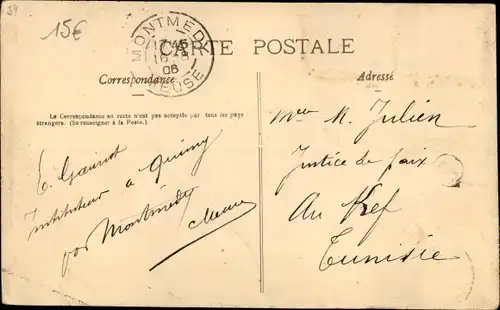 54
15€
MONTMEDY
MEUSE
08
CARTE POSTALE
Correspondance
Adresse
La Correspondance au recto n'est pas acceptée par tous les pays
étrangers. (Se renseigner à la Poste.)
E.
Instituteur à Quincy
par Montmédy
Meuse
K. Julien
Justice de paix
Au Kef
Tunisie